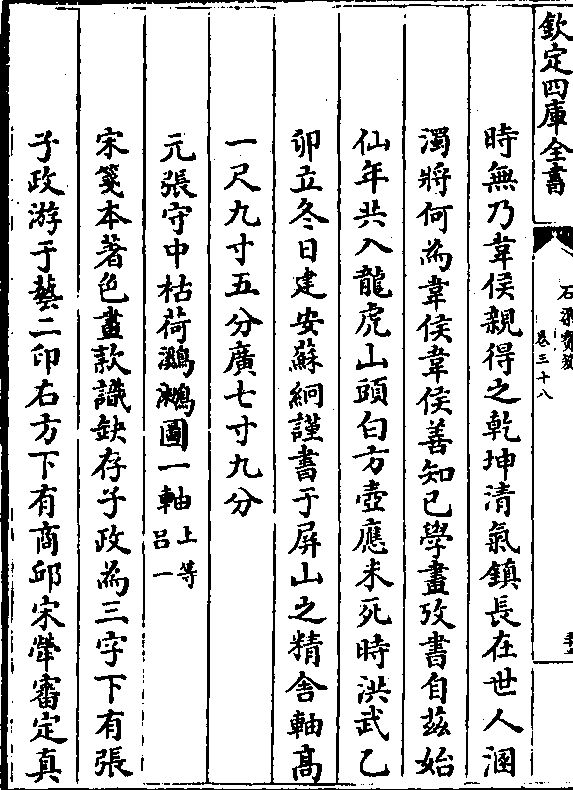 欽定四庫全書
石渠寶笈
卷三十八
時無乃韋侯親得之乾坤清氣鎮長在世人溷
濁將何為韋侯韋侯善知己學畫攷書自茲始
仙年共入龍虎山頭白方壺應未死時洪武乙
卯立冬日建安蘇絅謹書于屏山之精舍軸高
一尺九寸五分廣七寸九分
元張守中枯荷鸂鶒圖一軸
上等
呂一
宋箋本著色畫款識缺存子政為三字下有張
子政游于藝二印右方下有商邱宋犖審定真